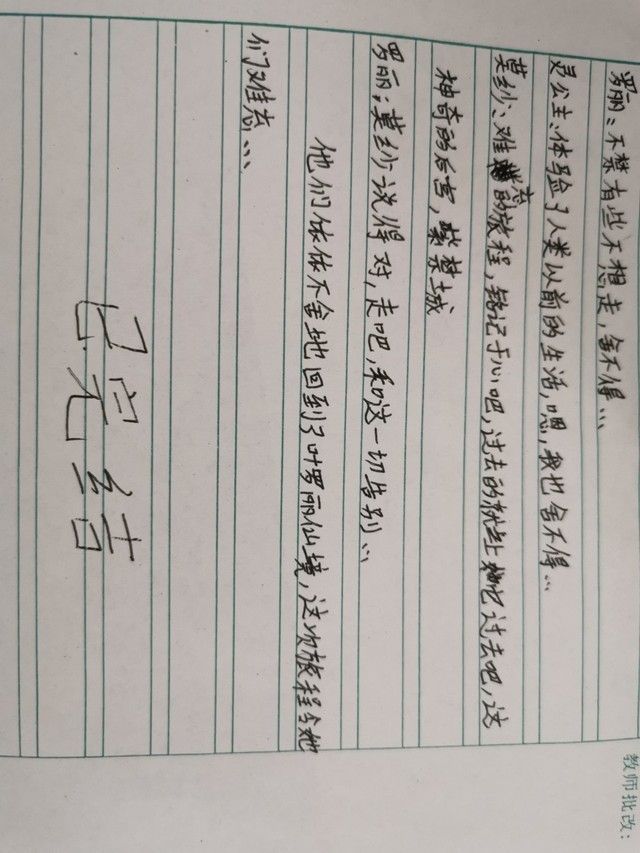 罗丽:不禁有些不想走,舍不得…
灵公主:体验了人类以前的生活,嗯,我也舍不得…
莫纱:难忘的旅程,铭记于心吧,过去的就让它过去吧,这
神奇的后宫,紫禁城
罗丽:莫纱说得对,走吧,和这一切告别…
他们依依不舍地回到了叶罗丽仙境,这次旅程令她
们难忘…
已完结
教师批改: